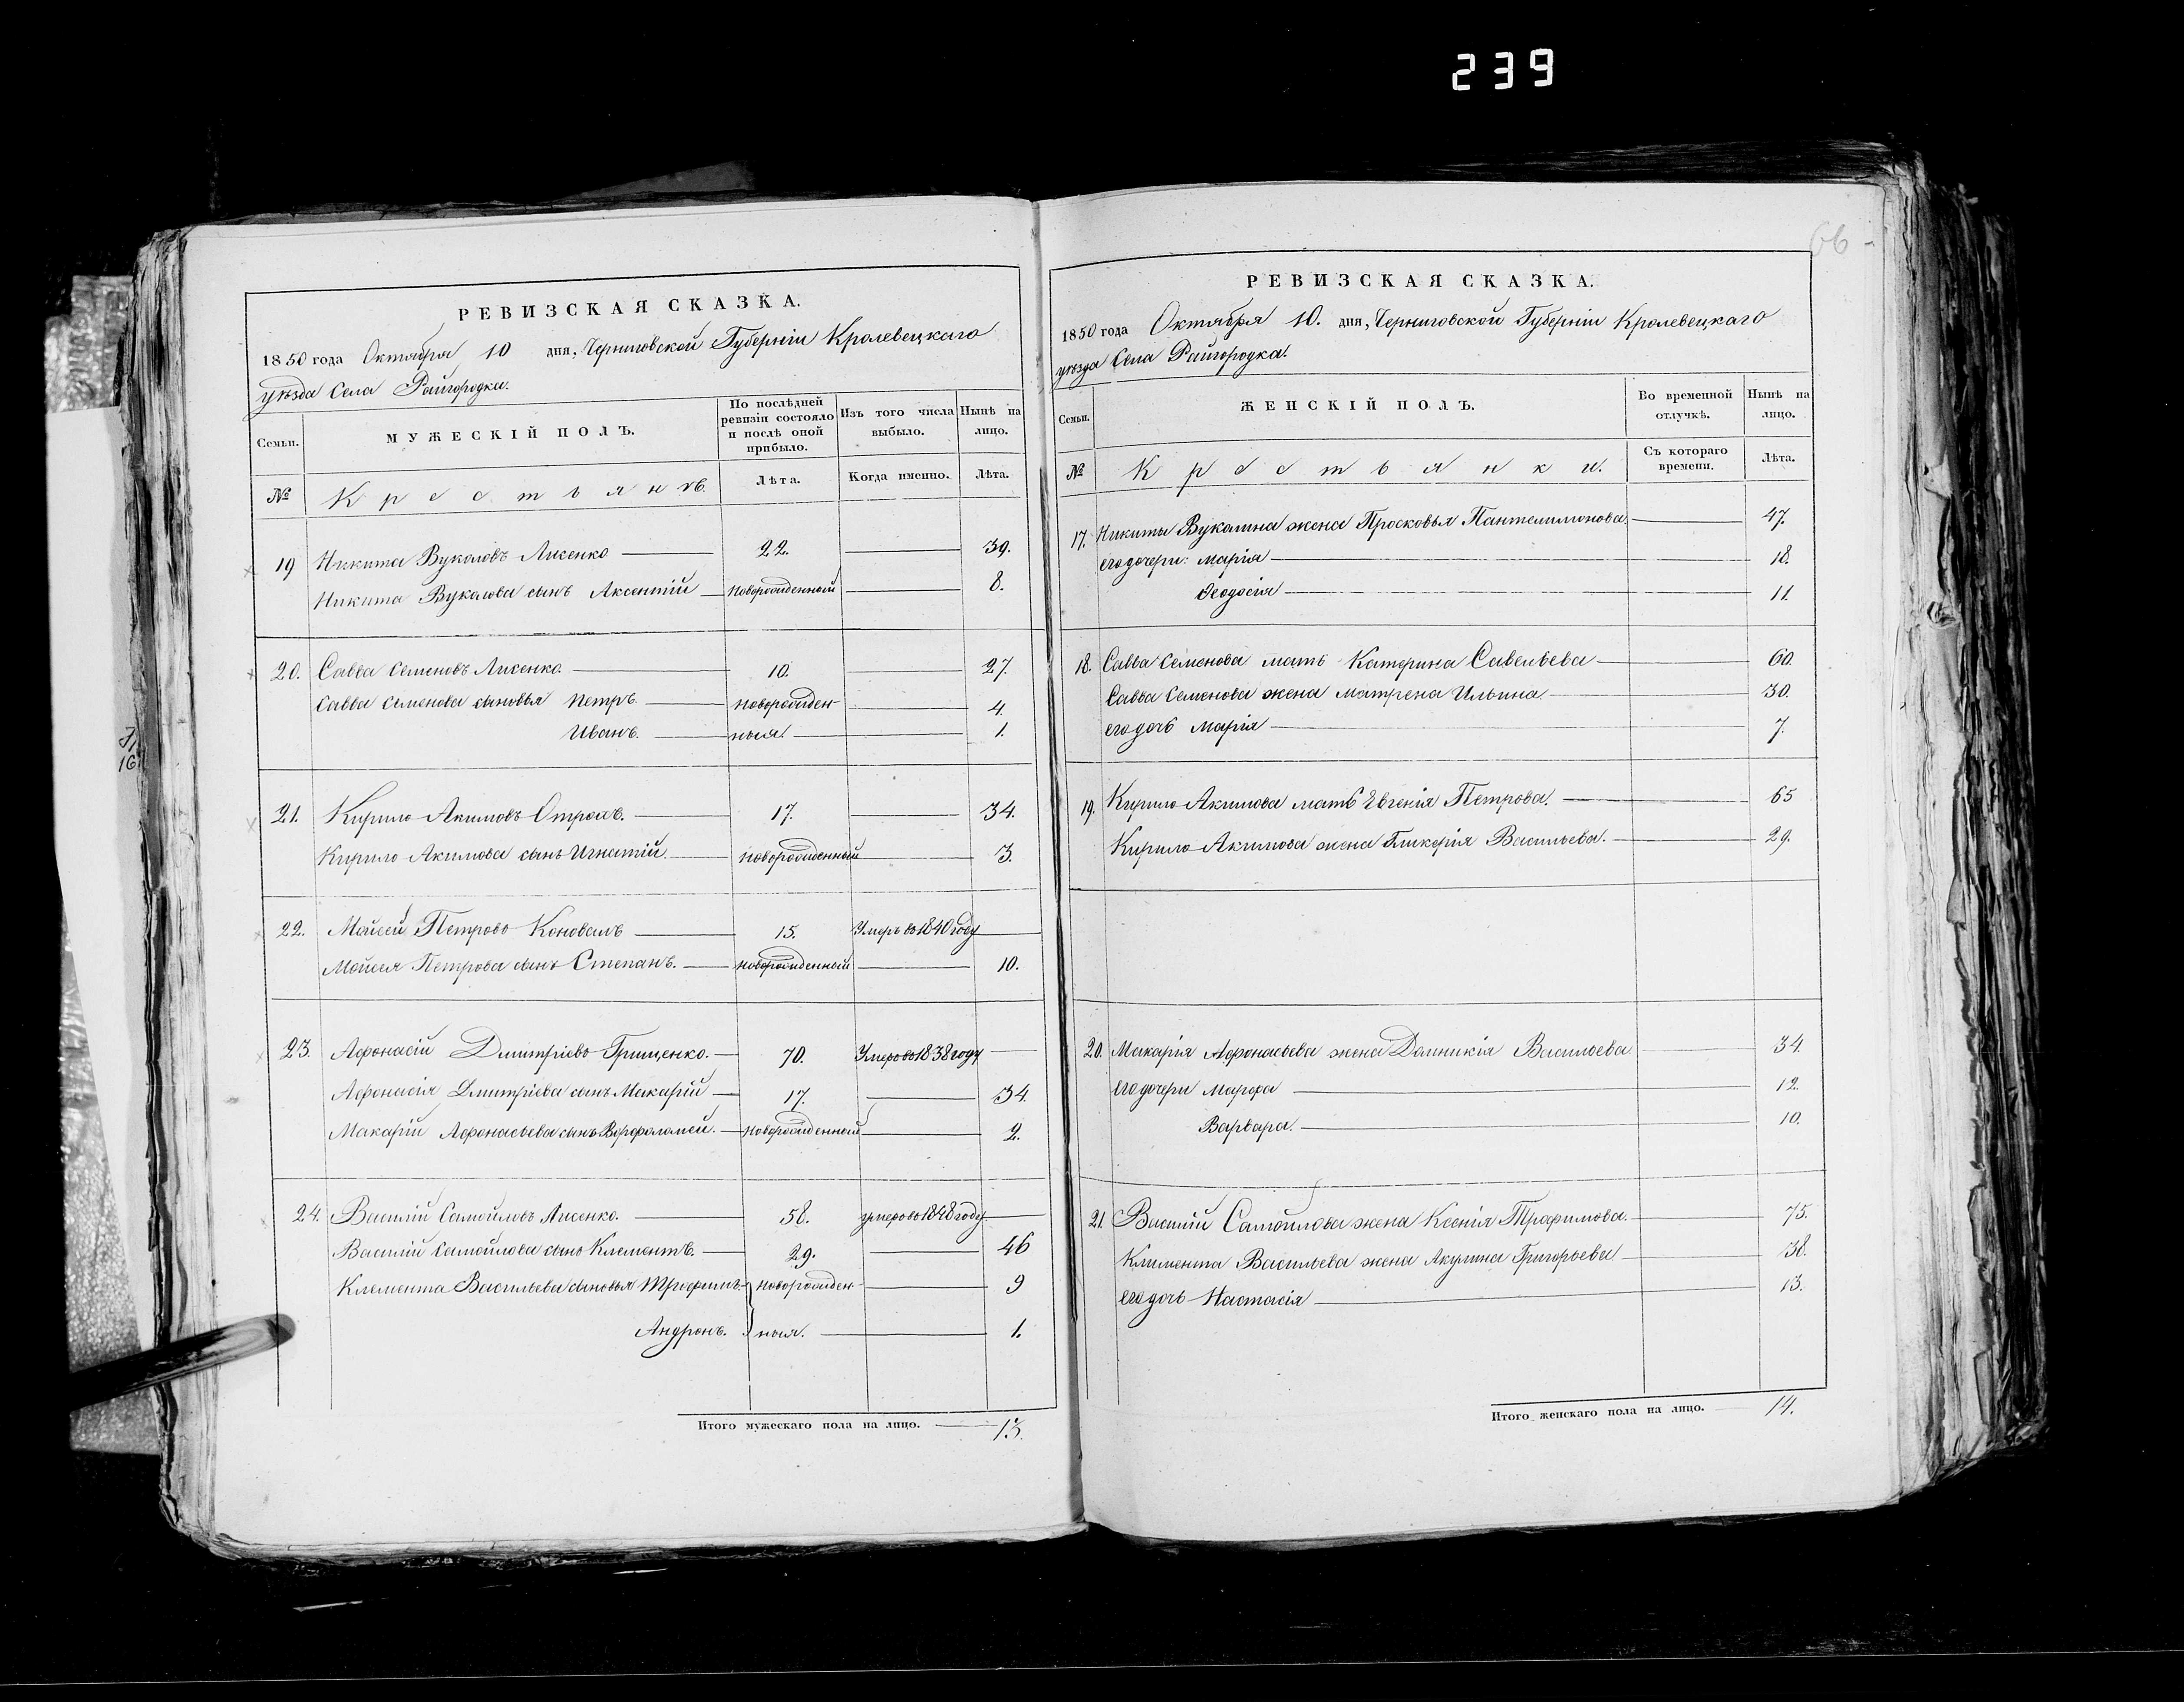 239
66
РЕВИЗСКАЯ СКАЗКА.
1850 года Октября 10 дня, Черниговской Губерніи Кролевецкаго
уѣзда Села Райгородка.
Семьи. МУЖЕСКІЙ ПОЛЪ. По послѣдней ревизіи состояло и послѣ оной прибыло. Изъ того числа выбыло. Нынѣ на лицо.
№ Крестьянъ. Лѣта. Когда именно. Лѣта.
19 Никита Вуколовъ Лисенко 22. 39.
Никита Вуколова сынъ Аксентій новорожденный 8.
20. Савва Семеновъ Лисенко 10. 27.
Савва Семенова сыновья Петръ. новорожден 4.
Иванъ. ныя. 1.
21. Кирило Акимовъ 17. 34.
Кирило Акимова сынъ Игнатій. новорожденный 3.
22. Мойсей Петровъ Коновалъ 15. Умеръ въ 1840 году
Мойсея Петрова сынъ Степанъ. новорожденный 10.
23. Афонасій Дмитріевъ Грищенко. 70. Умеръ въ 1838 году
Афонасія Дмитріева сынъ Макарій 17. 34.
Макарій Афонасьева сынъ Ворфоломей. новорожденный 2.
24. Василій Самойловъ Лисенко. 58. умеръ въ 1848 году
Василій Самойлова сынъ Клементъ. 29. 46
Клемента Васильева сыновья Трофимъ. новорожден 9
Андронъ. ныя. 1.
Итого мужескаго пола на лицо. 13.
РЕВИЗСКАЯ СКАЗКА.
1850 года Октября 10. дня, Черниговской Губерніи Кролевецкаго
уѣзда Села Райгородка.
Семьи. ЖЕНСКІЙ ПОЛЪ. Во временной отлучкѣ. Нынѣ на лицо.
№ Крестьянки. Съ котораго времени. Лѣта.
17. Никиты Вукалина жена Просковья Пантелимонова 47.
его дочери: Марія 18.
Феодосія 11.
18. Савва Семенова мать Катерина Савельева 60.
Савва Семенова жена Матрена Ильина 30.
его дочь Марія 7.
19. Кирило Акимова мать Евгенія Петрова. 65
Кирило Акимова жена Гликерія Васильева. 29.
20. Макарія Афонасьева жена Домникія Васильева 34.
его дочери Марфа 12.
Варвара. 10.
21. Василій Самойлова жена Ксенія Трофимова. 75.
Климента Васильева жена Акулина Григорьева 38.
его дочь Настасія 13.
Итого женскаго пола на лицо. 14.